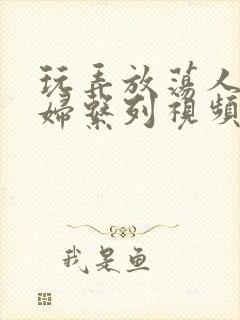 玩弄放荡人
婦繫列視頻
我是鱼